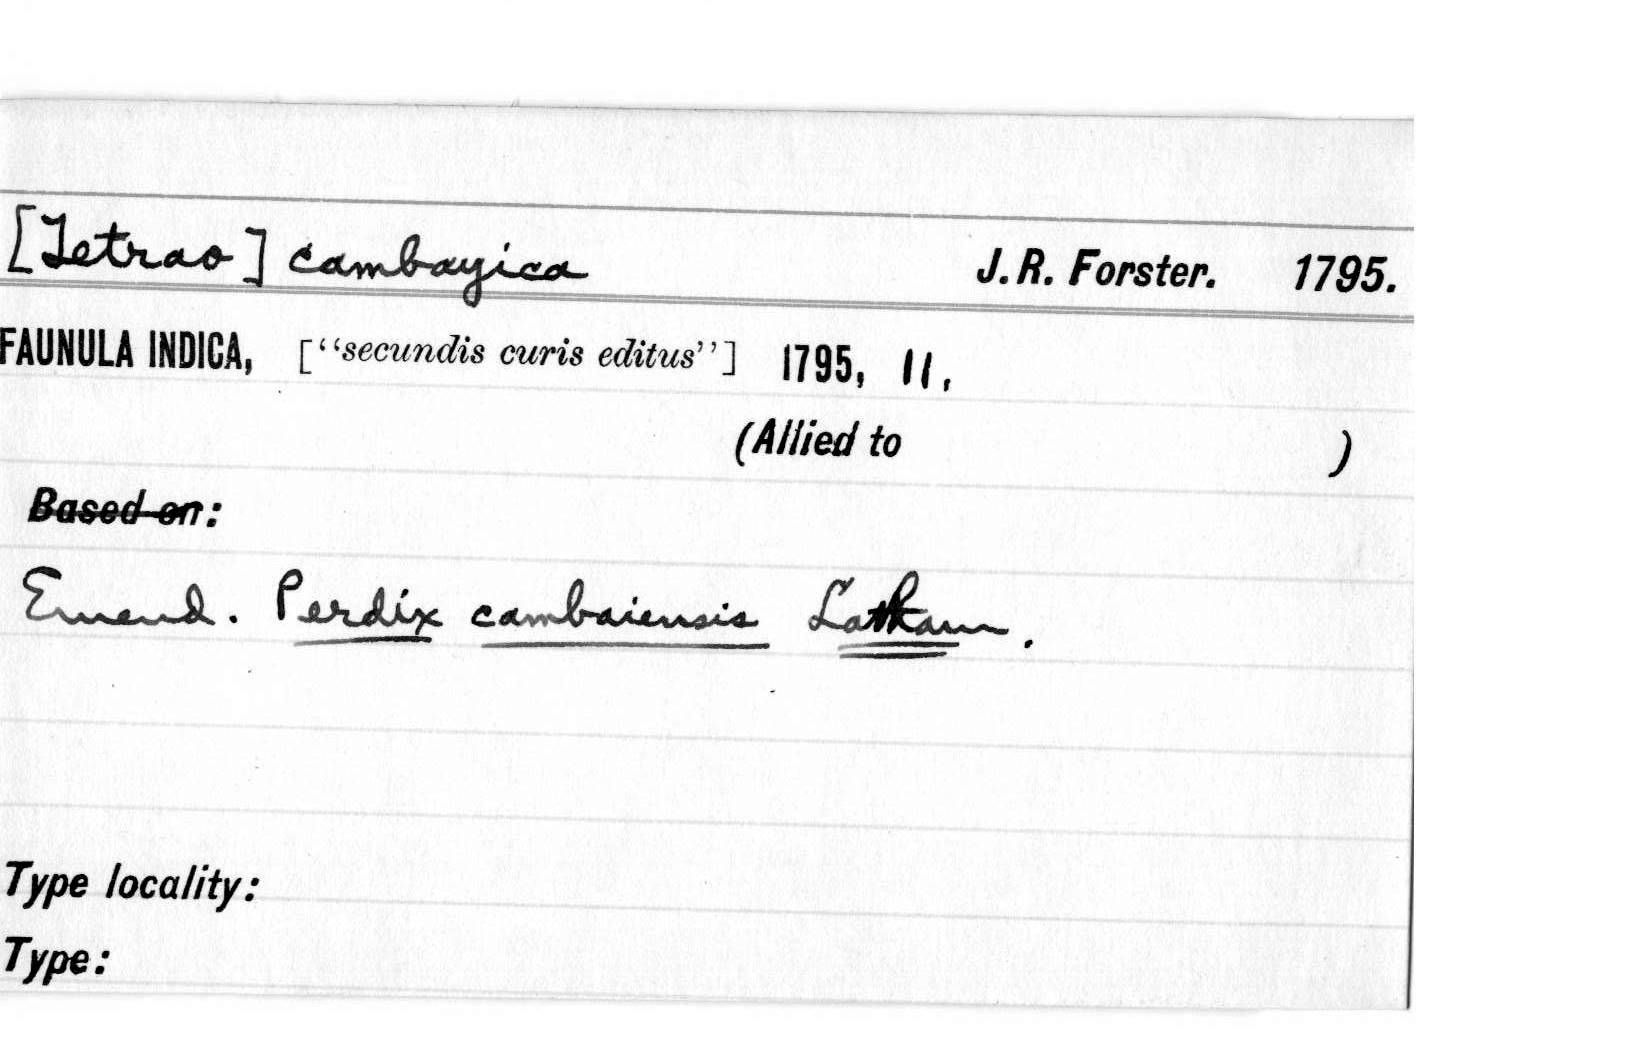 [Tetrao] cambayica J. R. Forster. 1795.
FAUNULA INDICA, ["secundis curis editus"] 1795, 11,
(Allied to )
Based on:
Emend. Perdix cambaiensis Latham.
Type locality:
Type: